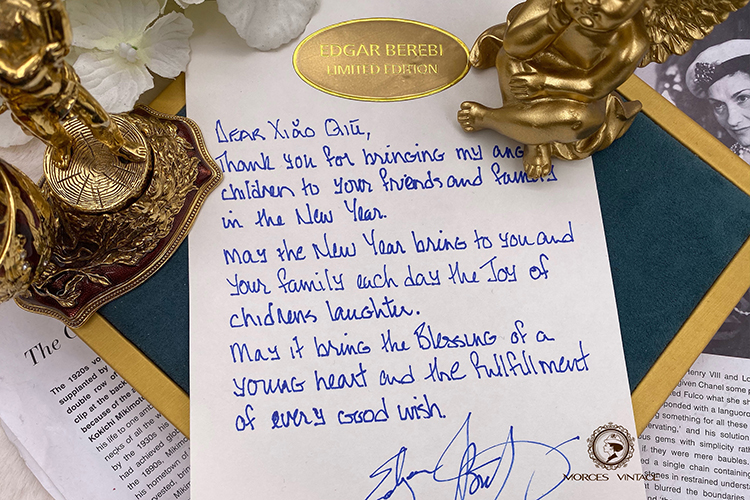 EDGAR BEREBI
LIMITED EDITION
DEAR XIǍO QIŪ,
Thank you for bringing my
children to your friends and family
in the New Year.
May the New Year bring to you and
your family each day the Joy of
chidrens laughter.
May it bring the Blessing of a
young heart and the fullfillment
of every good wish.
MORCES VINTAGE
The
The 1920s
supplanted by
double row of
clip at the back
because of the
Kokichi Mikimo
his life to one
necks of all the
by the 1930s his
had achieved
the 1890s, Mikimo
his hometown of
Henry VIII and
given Chanel some
Fulco what she
responded with a languor
something for all these
and his solution
gems with simplicity
if they were mere baubles.
a single chain containing
stones in restrained
blurred the